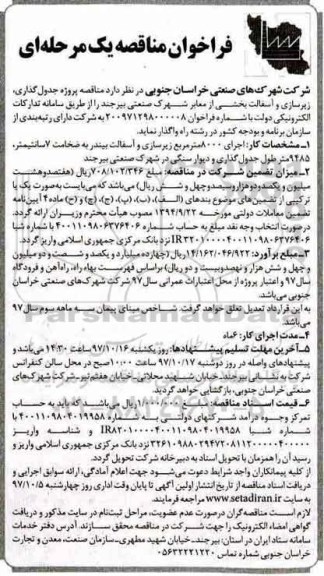 فراخوان مناقصه یک مرحله‌ای
شرکت شهرک‌های صنعتی خراسان جنوبی در نظر دارد مناقصه پروژه جدول‌گذاری،
زیرسازی و آسفالت بخشی از معابر شهرک صنعتی بیرجند را از طریق سامانه تدارکات
الکترونیکی دولت با شماره فراخوان ۲۰۰۹۷۱۲۹۸۰۰۰۰۰۸ به شرکت دارای رتبه‌بندی از
سازمان برنامه و بودجه کشور در رشته راه واگذار نماید.
۱-مشخصات کار: اجرای ۸۰۰۰مترمربع زیرسازی و آسفالت بیندر به ضخامت ۷سانتیمتر،
۹۴۸۵متر طول جدول‌گذاری و دیوار سنگی در شهرک صنعتی بیرجند
۲-میزان تضمین شرکت در مناقصه: مبلغ ۷۰۸/۱۰۲/۳۴۶ریال (هفتصدوهشت
میلیون و یکصدودوهزاروسیصدوچهل و شش ریال) می‌باشد که می‌بایست به‌صورت یک یا
ترکیبی از تضمین‌های موضوع بندهای (الف)، (ب)، (پ)، (ج)، (چ) و (ح) ماده۴ آیین‌نامه
تضمین معاملات دولتی مورخه ۱۳۹۴/۹/۲۲ مصوب هیأت محترم وزیران ارائه گردد.
در صورت انتخاب وجه نقد مبلغ به حساب شماره ۴۰۰۱۱۰۹۸۰۶۳۷۶۴۰۶ با شماره شبا
IR۳۲۰۱۰۰۰۰۴۰۰۱۱۰۹۸۰۶۳۷۶۴۰۶ نزد بانک مرکزی جمهوری اسلامی واریز گردد.
۳-مبلغ برآورد: ۱۴/۱۶۲/۰۴۶/۹۲۲ریال (چهارده میلیارد و یکصد و شصت و دو میلیون
و چهل و شش هزار و نهصدوبیست و دو ریال) براساس فهرست بهاء راه، راه‌آهن و فرودگاه
سال۹۷ و اعتبار پروژه از محل اعتبارات عمرانی سال۹۷ شرکت شهرک‌های صنعتی خراسان
جنوبی می‌باشد.
به این قرارداد تعدیل تعلق خواهد گرفت. شاخص مبنای پیمان سه ماهه سوم سال۹۷
می‌باشد.
۴-مدت اجرای کار: ۶ماه
۵-آخرین مهلت تسلیم پیشنهادها: روز یکشنبه ۹۷/۱۰/۱۶ساعت ۱۴:۳۰ می‌باشد و
پیشنهادهای واصله در روز دوشنبه ۹۷/۱۰/۱۷ ساعت ۱۰:۰۰صبح در محل سالن کنفرانس
شرکت به نشانی بیرجند، خیابان شهید محلاتی، خیابان هفتم‌تیر، شرکت شهرک‌های
صنعتی خراسان جنوبی، بازگشایی خواهد گردید.
۶-قیمت اسناد مناقصه: ۱/۰۰۰/۰۰۰ریال می‌باشد که باید به حساب
تمرکز وجوه درآمد شرکتهای دولتی به شماره ۴۰۰۱۱۰۹۸۰۴۰۱۹۹۵۸ با
شماره شبا IR۸۲۰۱۰۰۰۰۴۰۰۱۱۰۹۸۰۴۰۱۹۹۵۸ و شناسه واریز
نزد بانک مرکزی جمهوری اسلامی واریز و
رسید آن را همزمان با تحویل اسناد به دبیرخانه شرکت تحویل گردد.
از کلیه پیمانکاران واجد شرایط دعوت می‌شود جهت اعلام آمادگی، ارائه سوابق اجرایی و
دریافت اسناد مناقصه از تاریخ انتشار اولین آگهی تا پایان وقت اداری روز چهارشنبه ۹۷/۱۰/۵
به سایت www.setadiran.ir مراجعه فرمایند.
لازم است مناقصه‌گران درصورت عدم عضویت، مراحل ثبت‌نام در سایت مذکور و دریافت
گواهی امضاء الکترونیک را جهت شرکت در مناقصه محقق سازند. آدرس دفتر خدمات
سامانه ستاد ایران در استان: بیرجند-خیابان شهید مطهری-سازمان صنعت، معدن و تجارت
خراسان جنوبی شماره تماس ۰۵۶۳۲۲۲۱۲۲۰